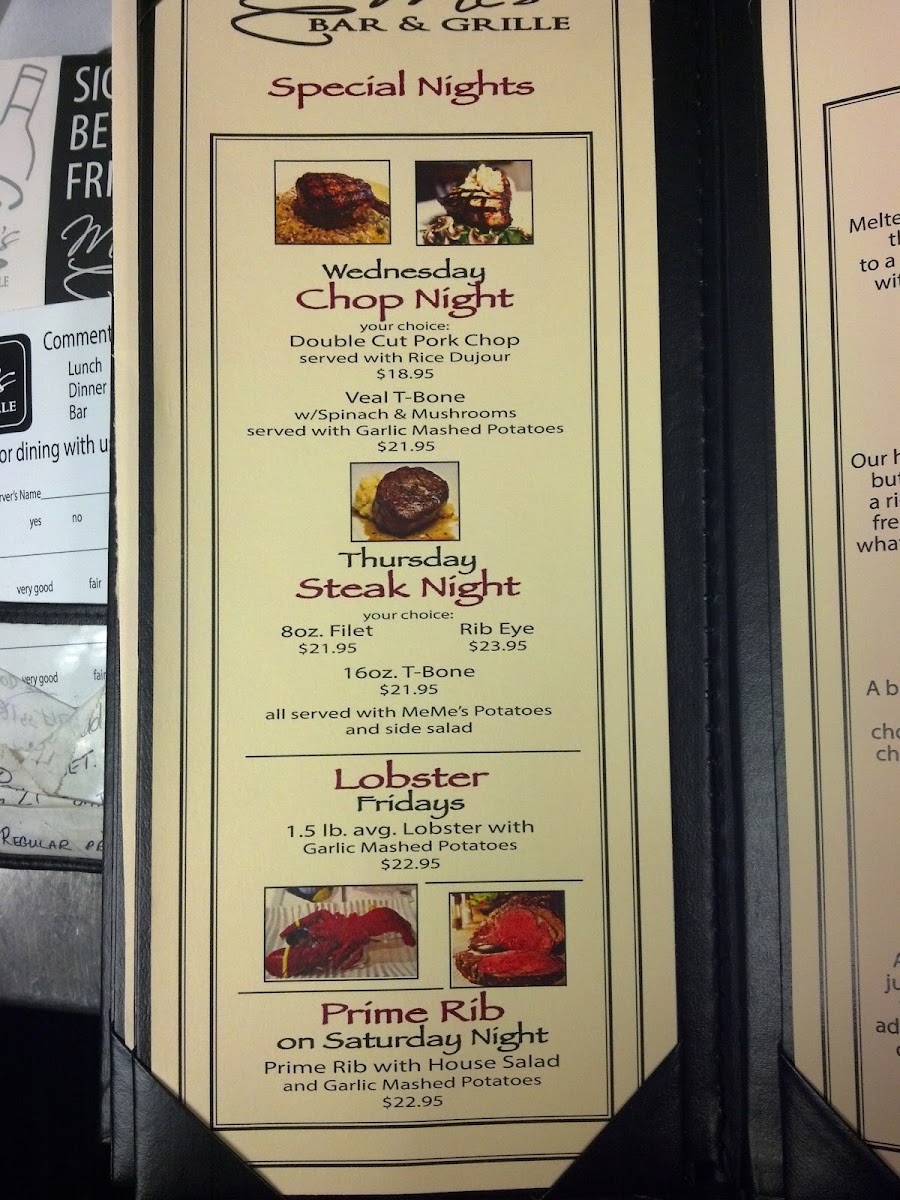 BAR & GRILLE
Special Nights
Wednesday
Chop Night
your choice:
Double Cut Pork Chop
served with Rice Dujour
$18.95
Veal T-Bone
w/Spinach & Mushrooms
served with Garlic Mashed Potatoes
$21.95
Thursday
Steak Night
your choice:
8oz. Filet
$21.95
Rib Eye
$23.95
16oz. T-Bone
$21.95
all served with MeMe's Potatoes
and side salad
Lobster
Fridays
1.5 lb. avg. Lobster with
Garlic Mashed Potatoes
$22.95
Prime Rib
on Saturday Night
Prime Rib with House Salad
and Garlic Mashed Potatoes
$22.95
SIG
BE
FRI
Comment
Lunch
Dinner
Bar
or dining with u
rver's Name
yes no
very good fair
very good fair
REGULAR
Melte
th
to a
wit
Our h
but
a ri
fre
what
A b
cho
ch
A
ju
ad